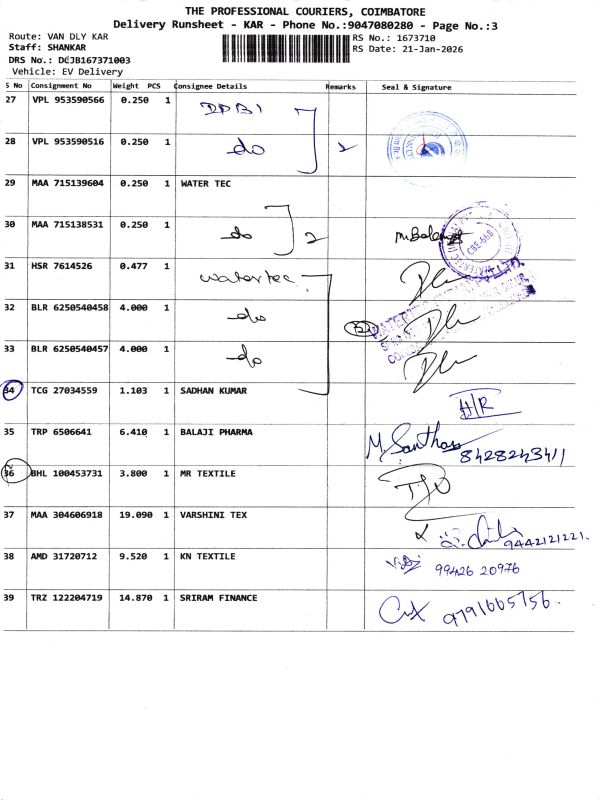 THE PROFESSIONAL COURIERS, COIMBATORE
Delivery Runsheet - KAR - Phone No.:9047080280 - Page No.:3
Route: VAN DLY KAR
RS No.: 1673710
Staff: SHANKAR
RS Date: 21-Jan-2026
DRS No.: DCJB167371003
Vehicle: EV Delivery
S No Consignment No Weight PCS Consignee Details Remarks Seal & Signature
27 VPL 953590566 0.250 1 IDBI
28 VPL 953590516 0.250 1 do 2
29 MAA 715139604 0.250 1 WATER TEC
30 MAA 715138531 0.250 1 do 2
31 HSR 7614526 0.477 1 watertec
32 BLR 6250540458 4.000 1 do
33 BLR 6250540457 4.000 1 do
34 TCG 27034559 1.103 1 SADHAN KUMAR H/R
35 TRP 6506641 6.410 1 BALAJI PHARMA M. Santhos 8428243411
36 BHL 100453731 3.800 1 MR TEXTILE
37 MAA 304606918 19.090 1 VARSHINI TEX 9442121221.
38 AMD 31720712 9.520 1 KN TEXTILE 99426 20976
39 TRZ 122204719 14.870 1 SRIRAM FINANCE 9791665756.